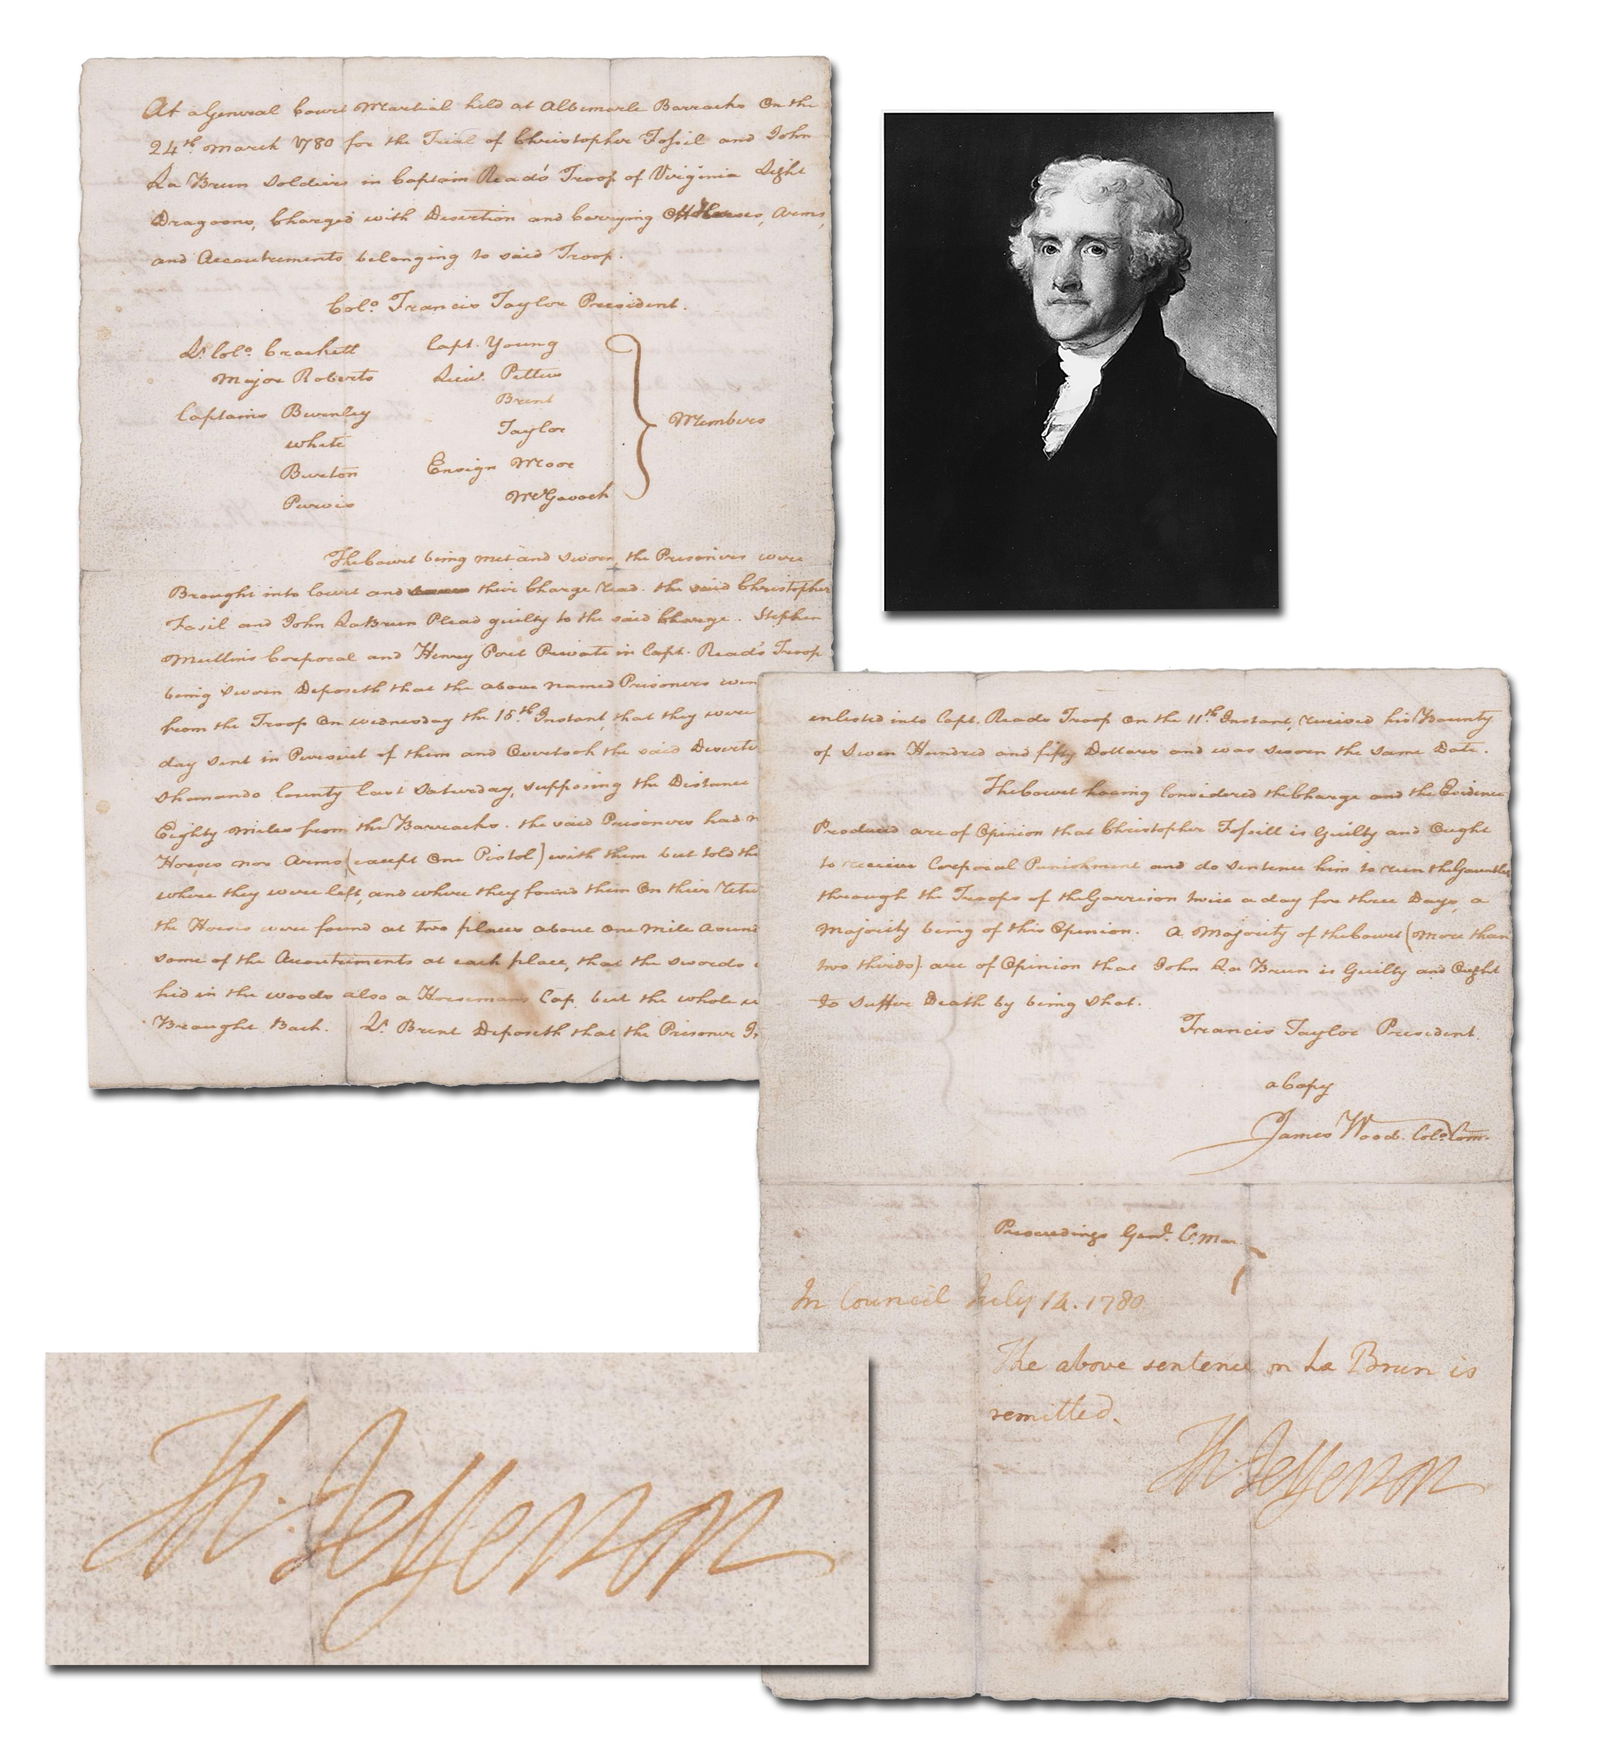 At a General Court Martial held at Albemarle Barracks On the
24th March 1780 for the Trial of Christopher Fossil and John
La Brun Soldiers in Captain Read's Troop of Virginia Light
Dragoons, Charged with Desertion and Carrying Off Horses, Arms,
and Accoutrements belonging to said Troop.
Colo. Francis Taylor President.
Lt. Colo. Crockett
Major Roberts
Captains Burnley
White
Burton
Purvis
Capt. Young
Lieut. Pettus
Brent
Taylor
Ensign Moor
McGavock
Members
The Court being met and Sworn, the Prisoners were
Brought into Court and their Charge read. the said Christopher
Fosil and John LaBrun Plead guilty to the said Charge. Stephen
Mullins Corporal and Henry Port Private in Capt. Read's Troop
being Sworn Deposeth that the above named Prisoners
from the Troop On Wednesday the 15th Instant, that they were
day sent in Persuit of them and Overtook the said
Shanando County last Saturday, supposing the Distance
Eighty Miles from the Barracks. the said Prisoners had
Horses nor Arms (except One Pistol) with them but told
where they were left, and where they found them On their
the Horses were found at two places about One Mile
some of the Accoutriments at each place, that the Swords
hid in the woods also a Horsemans Cap, but the whole
Braught Back. Lt. Brent Deposeth that the Prisoner
enlisted into Capt. Reads Troop On the 11th Instant, received his Bounty
of Seven Hundred and fifty Dollars and was sworn the same Date.
The Court having Considered the Charge and the Evidence
Produced are of Opinion that Christopher Fossill is Guilty and Ought
to receive Corporal Punishment and do Sentence him to run the Gauntlet
through the Troops of the Garrison twice a day for three Days, a
Majority being of this Opinion. A Majority of the Court (More than
two thirds) are of Opinion that John La Brun is Guilty and Ought
to Suffer Death by being Shot.
Francis Taylor President
a Copy
James Wood Colo. Com.
Proceedings Genl. C. Mar
In Council July 14. 1780
The above sentence on La Brun is
remitted.
Th: Jefferson
Th: Jefferson